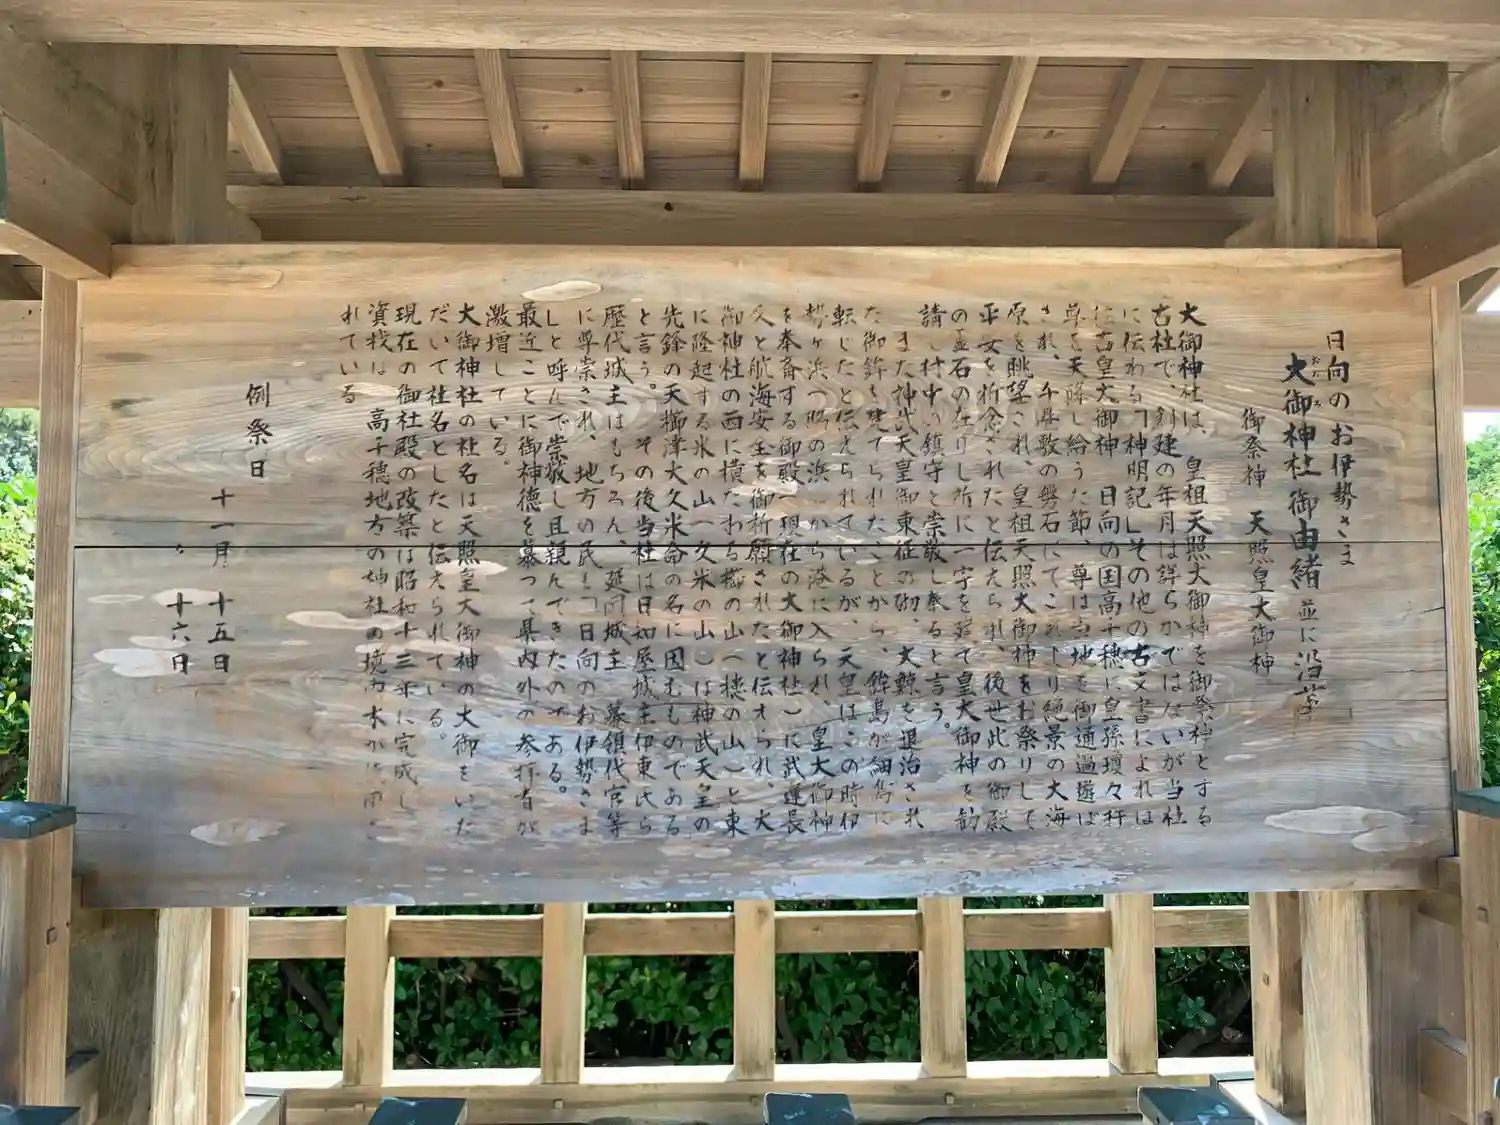 日向のお伊勢さま
大御神社御由緒並に沿革
おおみ
御祭神 天照皇大御神
大御神社は、皇祖天照大御神を御祭神とする
古社で、創建の年月は詳らかではないが当社
に伝わる「神明記」その他の古文書によれば
往古皇大御神、日向の国高千穂に皇孫瓊々杵
尊を天降し給うた節、尊は当地を御通過遊ば
され、千畳敷の盤石にてこれより絶景の大海
原を眺望され、皇祖天照大御神をお祭りして
平安を祈念されたと伝えられ、後世此の御殿
の霊石の在りし所に一宇を建て皇大御神を勧
請し村中の鎮守と崇敬し奉ると言う。
また神武天皇御東征の砌、大鯨を退治され
た御鉾を建てられたことから、鉾島が細島に
転じたと伝えられているが、天皇はこの時伊
勢ヶ浜から港に入られ、皇大御神
を奉斎する御殿(現在の大御神社)に武運長
久と航海安全を御祈願されたと伝えられ、大
御神社の西に横たわる櫛の山(穂の山)と東
に隆起する米の山(久米の山)は神武天皇の
先鋒の天櫛津大久米命の名に因むものである
と言う。その後当社は日知屋城主伊東氏ら
歴代城主はもちろん、延岡城主、幕領代官等
に尊崇され、地方の民も「日向のお伊勢さま
」と呼んで崇敬し且親んできたのである。
最近ことに御神徳を慕って県内外の参拝者が
激増している。
大御神社の社名は天照皇大御神の大御をいた
だいて社名としたと伝えられている。
現在の御社殿の改築は昭和十三年に完成し
資材は、高千穂地方の神社の境内木が使用さ
れている
例祭日
十一月 十五日
〃 十六日